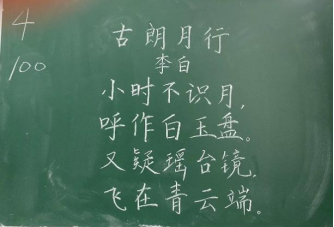 4
100
古朗月行
李白
小时不识月,
呼作白玉盘。
又疑瑶台镜,
飞在青云端。